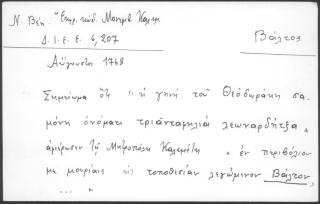 Ν. Βέη. "Σημ. κώδ. Μονῆς Καλαμ
Δ.Ι.Ε.Ε. 6, 207
Βάλτος
Αὔγουστι 1768
Σημείωμα ὅτι " ἡ γηνή τοῦ Θεοδωράκη σα-
μόνη ὀνόματι τριανταμηλιά λεωναρδήτζα
ἀφιέρωσεν τῇ Μητροπόλει " ἐν περιβόλιον
με μουριαῖς εἰς τοποθεσίαν λεγώμινον Βάλτον
... "